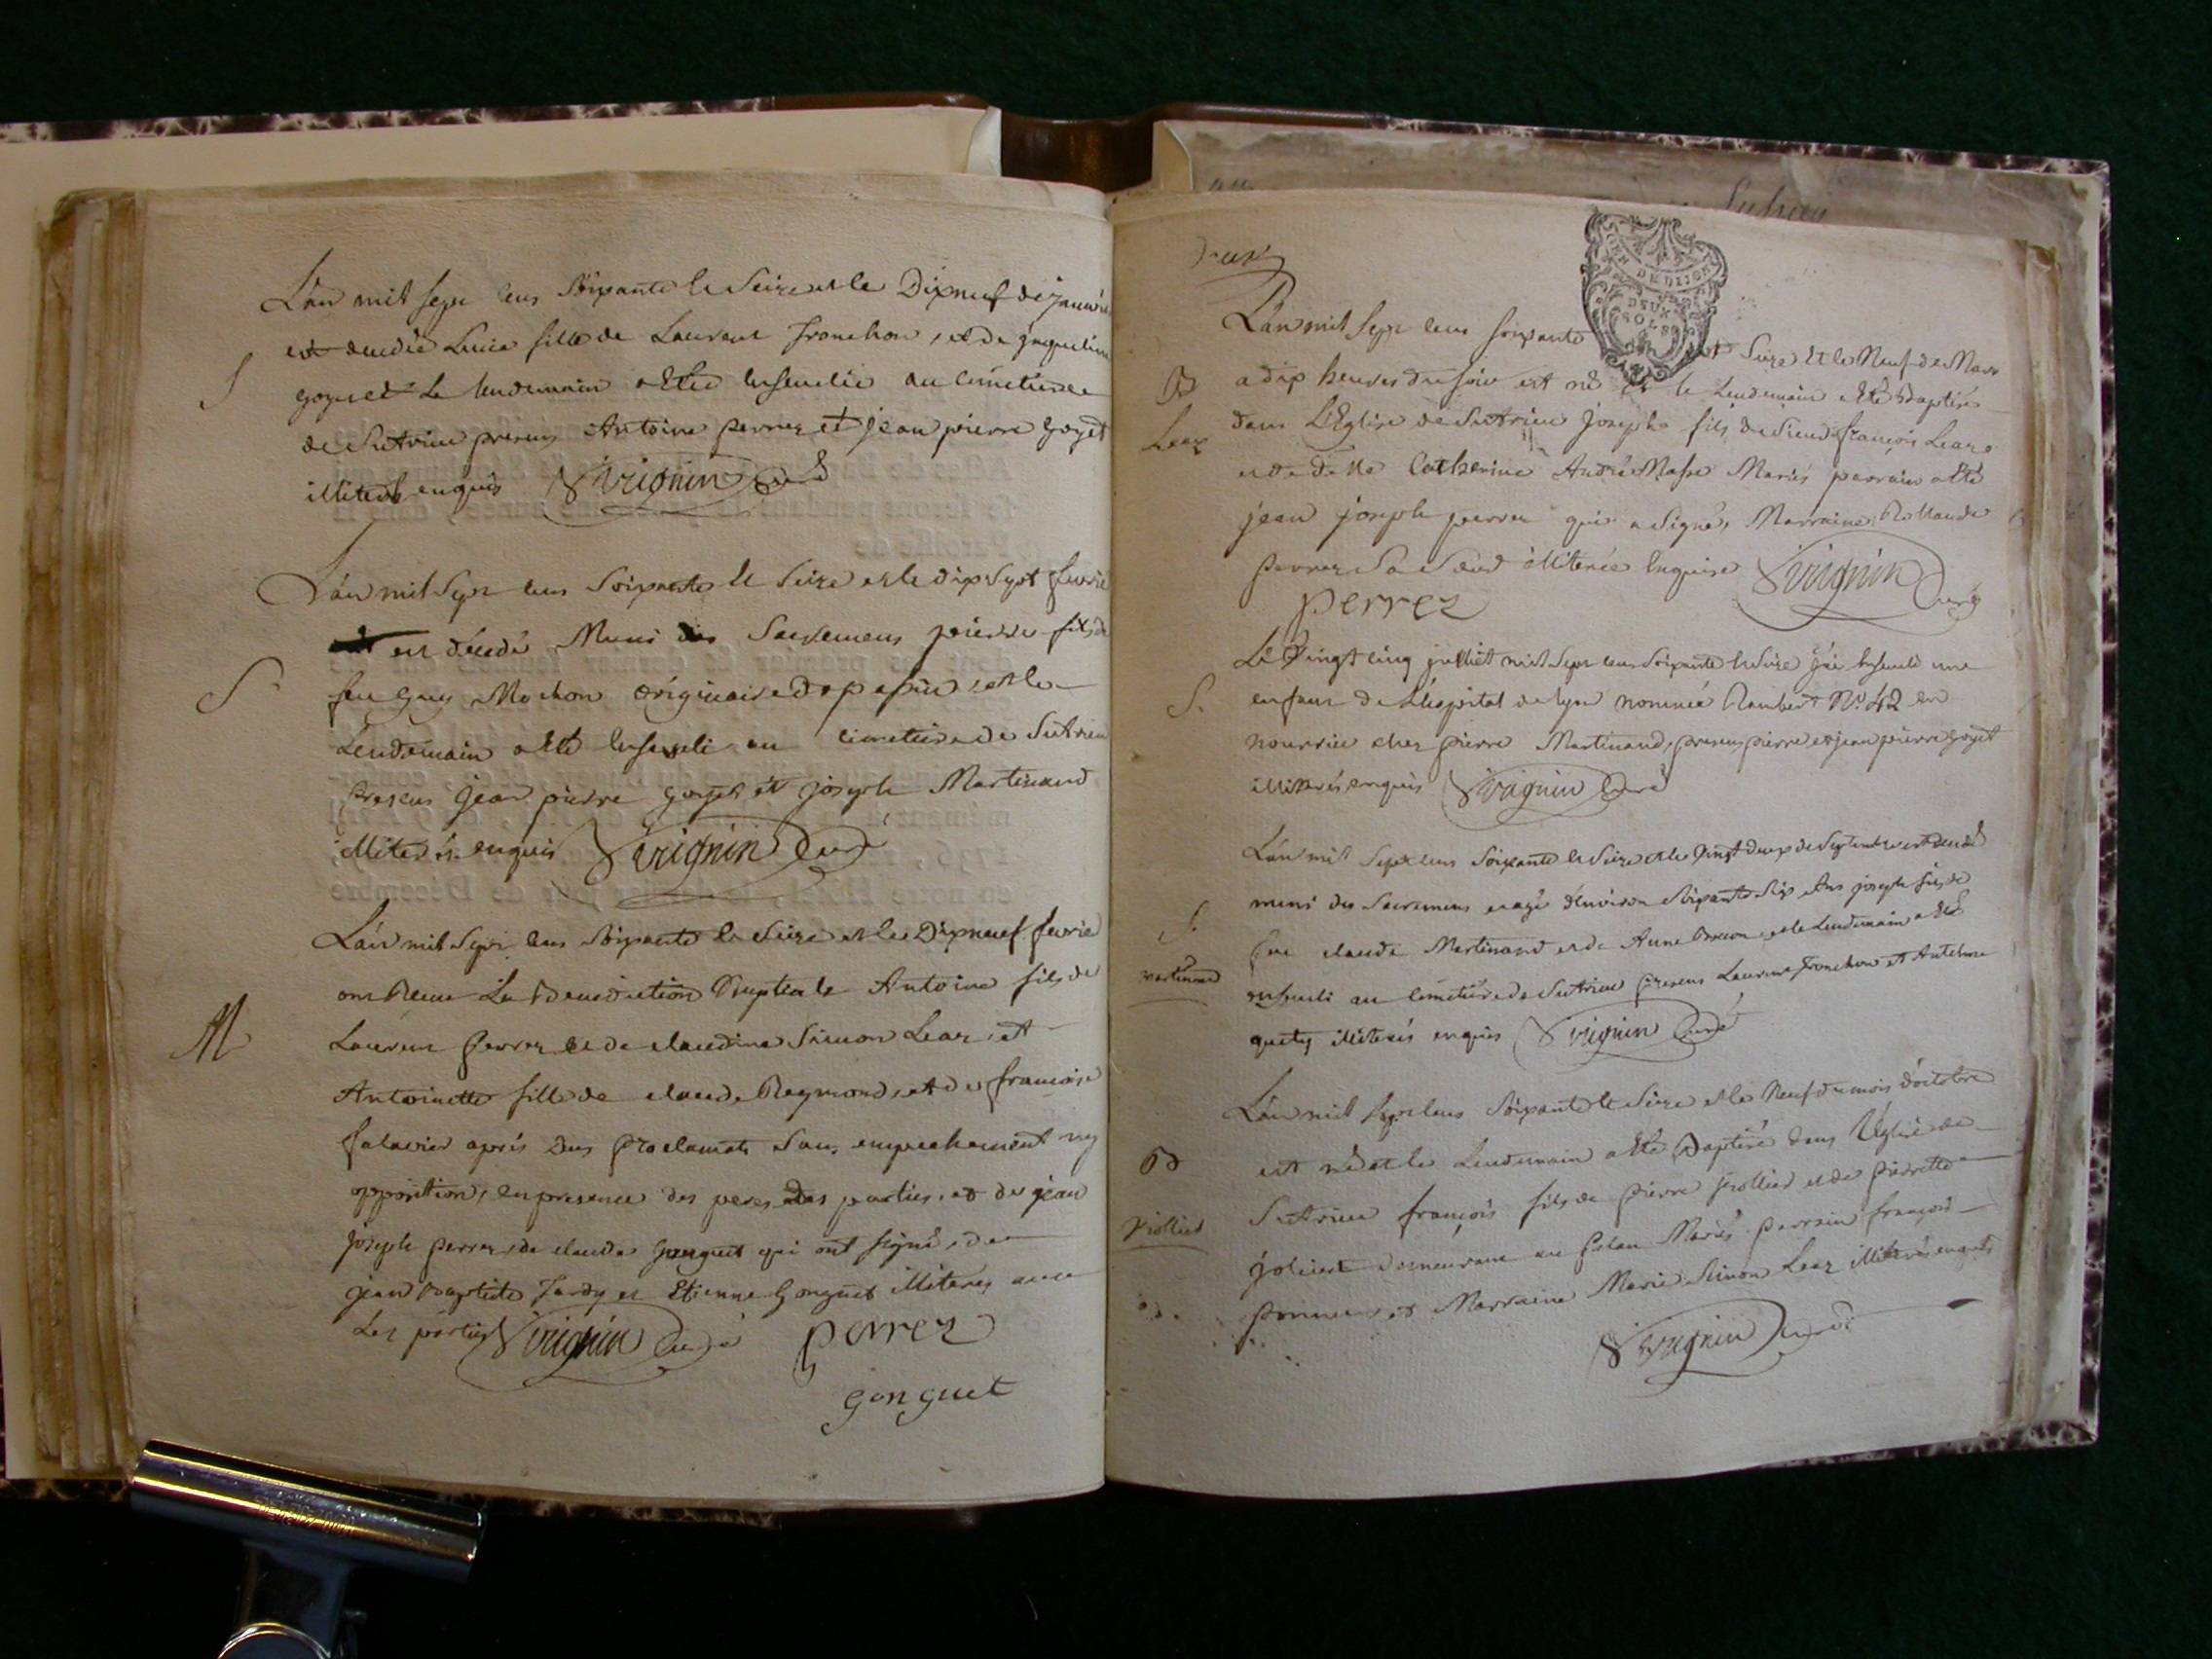 L'an mil sept cens soixante et seize et le Dixneuf de janvier
est decedée Lucie fille de Laurent Tronchon, et de jaqueline
S
goyet Le lendemain a Eté Ensevelie au Cimetiere
de Sutrieu presens Antoine perrez et jean pierre goyet
illiterés enquis Virignin Curé
L'an mil Sept cens Soixante et Seize et le dix Sept fevrier
est décédé Muni des Sacremens pierre fils de
S
feu guy Mochon originaire de , et le
Lendemain a Eté Enseveli au cimetiere de Sutrieu
presens jean pierre goyet et joseph Martinand
illiterés enquis Virignin Curé
L'an mil Sept cens Soixante et Seize et le Dixneuf fevrier
ont Recu La Benediction Nuptiale Antoine fils de
M
Laurent perrez et de claudine Simon Lear, et
Antoinette fille de claude Reymond, et de francoise
falavier aprés Dus proclamats Sans empechement ny
opposition, en presence des peres des parties, et de jean
joseph perrez, de claude gonguet qui ont signé, de
jean Baptiste Tardy et Etienne gonguet illiterés avec
Les parties Virignin Curé perrez
gonguet
deux
GEN DE DIJON
DEUX
SOLS
L'an mil Sept cens soixante et Seize et le Neuf de Mars
B
a dix heures du soir est né et le Lendemain a Eté Baptisé
Lear
dans L'Eglise de Sutrieu joseph fils de Sieur françois Lear
et de delle Catherine André Masse Mariés parrain a Eté
jean joseph perrez qui a Signé, Marraine Rollande
perrez Sa Seur illiterée Enquise Virignin Curé
perrez
Le Vingt cinq juillet mil Sept cens Soixante et Seize j'ai Enseveli une
S.
enfant de L'hopital de lyon nommée Rambert No. 42 en
nourrice chez pierre Martinand, presens pierre et jean pierre goyet
illiterés enquis Virignin Curé
L'an mil Sept cens Soixante et Seize et le Vingt deux de Septembre est decedé
muni des Sacremens et agé d'environ Soixante Six Ans joseph fils de
S.
feu claude Martinand et de Anne , et le Lendemain a Eté
martinand
enseveli au Cimetiere de Sutrieu presens Laurent Tronchon et Antelme
illiterés enquis Virignin Curé
L'an mil Sept cens Soixante et Seize et le Neuf du mois d'octobre
B
est né et le Lendemain a Eté Baptisé dans L'église de
Sutrieu françois fils de pierre jiollier et de pierrette
jiollier
joliert demeurant au Mariés parrain françois
et Marraine Marie Simon Lear illiterés enquis
Virignin Curé